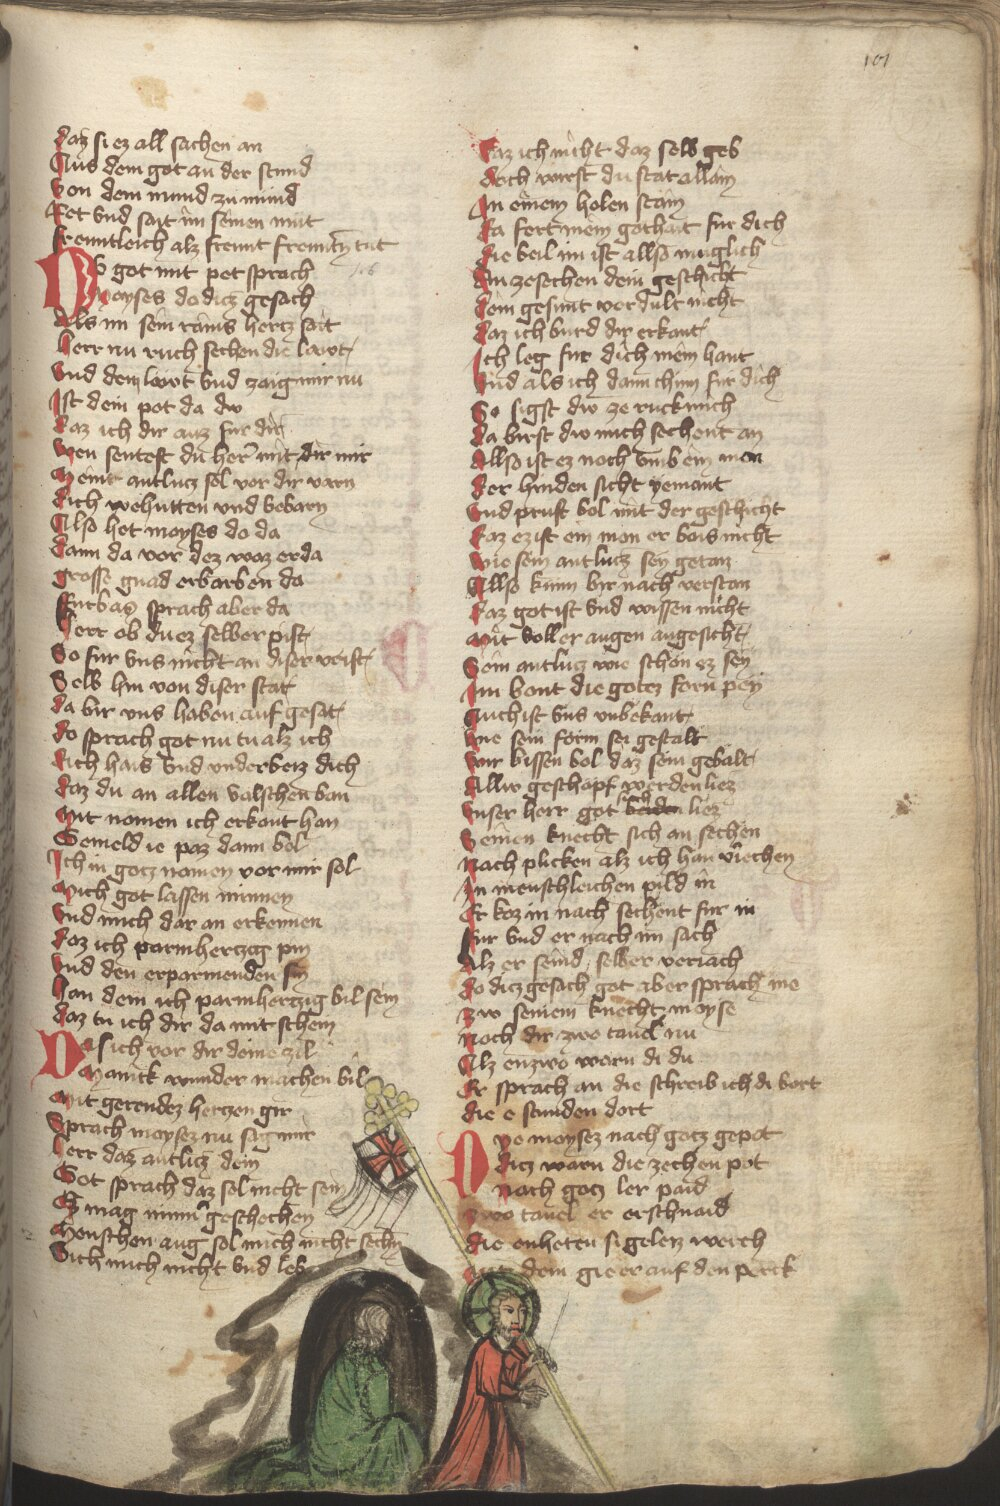 101
daz si ez all sachen an
Aus dem got an der stund
von dem mund zu mund
Ret vnd sait im seinen mut
frewntleich alz frewnt frewnten tut
Do got mit pet sprach
Moyses do dicz gesach
Als im sein rains hertz sait
herr nu ruch sechen die lewt
vnd dem lewt vnd zaig mir nu
Ist dein pot da dw
daz ich dir auz fur dir
wen sentest du her mit dir mir
Mein antlucz sol vor dir varn
dich wehutten vnd bebarn
Also het moyses do da
dann da vor dez waz er da
grosse gnad erbarben da
furbaz sprach aber da
herr ob du ez selber pist
So fur vns nicht an diser vrist
Selb hin von diser stat
da bir vns haben auf gesat
do sprach got nu tu alz ich
dich hais vnd vnderbeiz dich
daz du an allen valschen ban
mit nomen ich erkant han
Gemeld ie paz dann bol
Ich in gotz nomen vor mir sol
Mich got lassen nimmen
vnd mich dar an erkennen
daz ich parmhertzig pin
vnd den erparmenden sin
han dem ich parmhertzig bil sein
daz tu ich dir da mit schein
Do sich vor dir deine zil
Manick wunder machen bil
Mit gerendez hertzen gir
Sprach moysez nu sig mir
herr daz antlicz dein
Got sprach daz sol nicht sein
Ez mag nimer geschechen
Menschen aug sol mich nicht sechn
Sich mich nicht vnd leb
daz ich nicht daz selb geb
doch wirst du stat allain
In einem holen stain
da fert mein gothait fur dich
die beil im ist allso muglich
An zesechen dein geschicht
dein gesunt verdult nicht
daz ich burd dir erkant
Ich leg fur dich mein hant
vnd als ich dann chum fur dich
So sigst dw ze ruck mich
da birst dw mich sechent an
Allso ist ez noch vmb ein man
der hinden sicht yemant
vnd pruft bol mit der geschicht
daz ez ist ein man er bais nicht
wie sein antlucz sey getan
Allso kunn bir nach verstan
daz got ist vnd wissen nicht
mit voller augen angesicht
Sein antlucz wie schon ez sey
Im bont die gotez forn pey
Auch ist vns vnbekant
wie sein form sei gestalt
wir bissen bol daz sein gebalt
Allw geschopf werden liez
vnser herr got liez
Seinen knecht sich an sechen
nach plicken alz ich han viechen
In menschleichen pild in
Er koz in nach sechent fur in
fur vnd er nach im sach
Alz er seind selber veriach
do dicz gesach got aber sprach me
zw seinem knecht moyse
noch dir zwo tauel nu
Alz enzwo warn di du
Er sprach an die schreib ich di bort
die e stunden dort
Do moysez nach gotz gepot
dicz warn die zechen pot
Noch gotz ler paid
zwo tauel er erschnaid
die enheten sigelez werch
mit dem gie er auf den perck